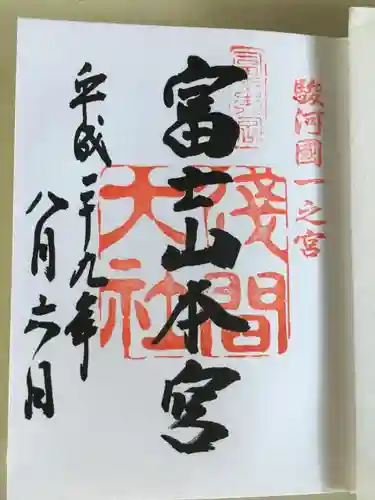 駿河國一之宮
富士山本宮
淺間
大社
平成二十九年
八月六日